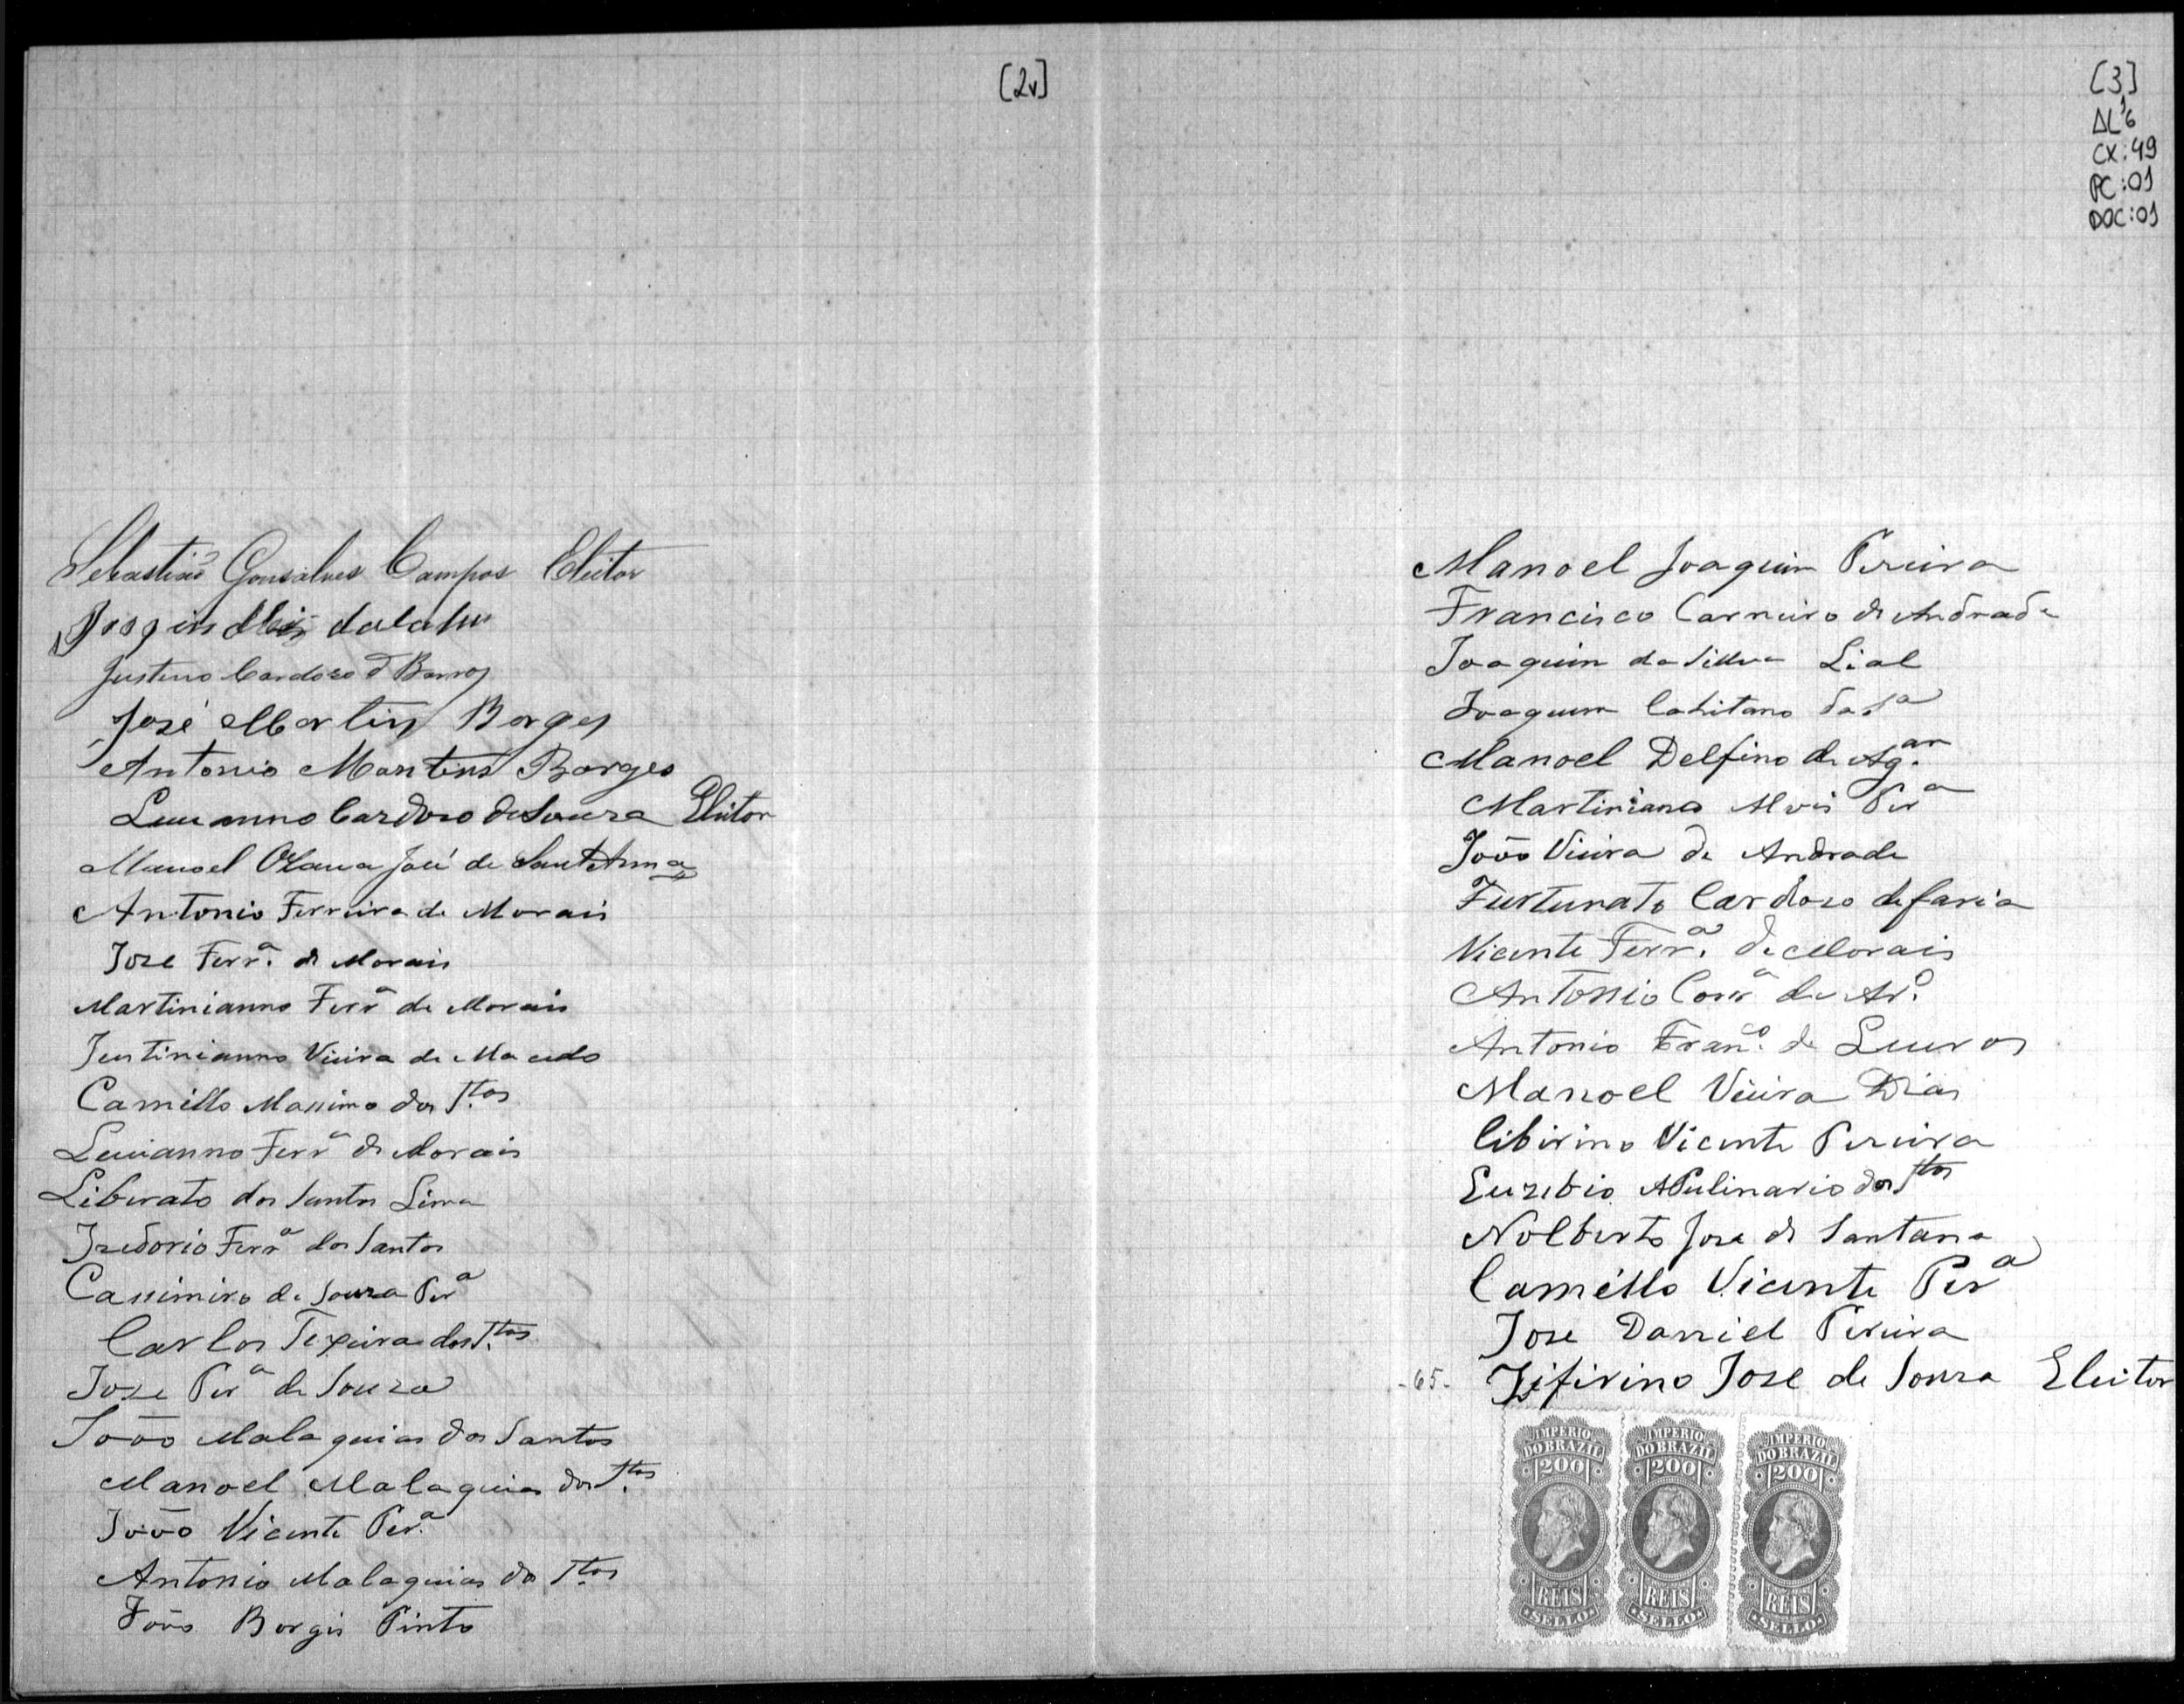 [2v]
Sebastião Gonsalves Campos Eleitor
Justino Cardozo d Barros
José Martins Borges
Antonio Martins Borges
Lucianno Cardozo de Souza Eleitor
Manoel José de Sant Anna
Antonio Ferreira de Morais
Jose Ferrª. de Morais
Martinianno Ferrª de Morais
Justinianno Vieira de Macedo
Camillo Maximo dos Stos
Lucianno Ferrª de Morais
Liberato dos Santos Lima
Izedorio Ferrª dos Santos
Cassimiro de Souza Perª
Carlos Texeira dos Stos
Jose Perª de Souza
João Malaquias dos Santos
Manoel Malaquias dos Stos
João Vicente Perª
Antonio Malaquias do Stos
João Borgis Pinto
[3]
CX:49
PC:01
DOC:01
Manoel Joaquim Pereira
Francisco Carneiro de Andrade
Joaquim da Sillva Lial
Joaquim Cahitano da Sª
Manoel Delfino de Ag.ar
Martiniano Alvis Perª
João Vieira de Andrade
Furtunato Cardozo de faria
Vicente Ferrª. de Morais
Antonio Corrª de Arº.
Antonio Franº. de
Manoel Vieira Dias
Cibirino Vicente Pereira
Euzebio APulinario dos Stos
Nolberto Jose de Santana
Camillo Vicente Perª
Jose Daniel Pereira
-65- Zifirino Jose de Souza Eleitor
IMPERIO DO BRAZIL 200 REIS SELLO
IMPERIO DO BRAZIL 200 REIS SELLO
IMPERIO DO BRAZIL 200 REIS SELLO